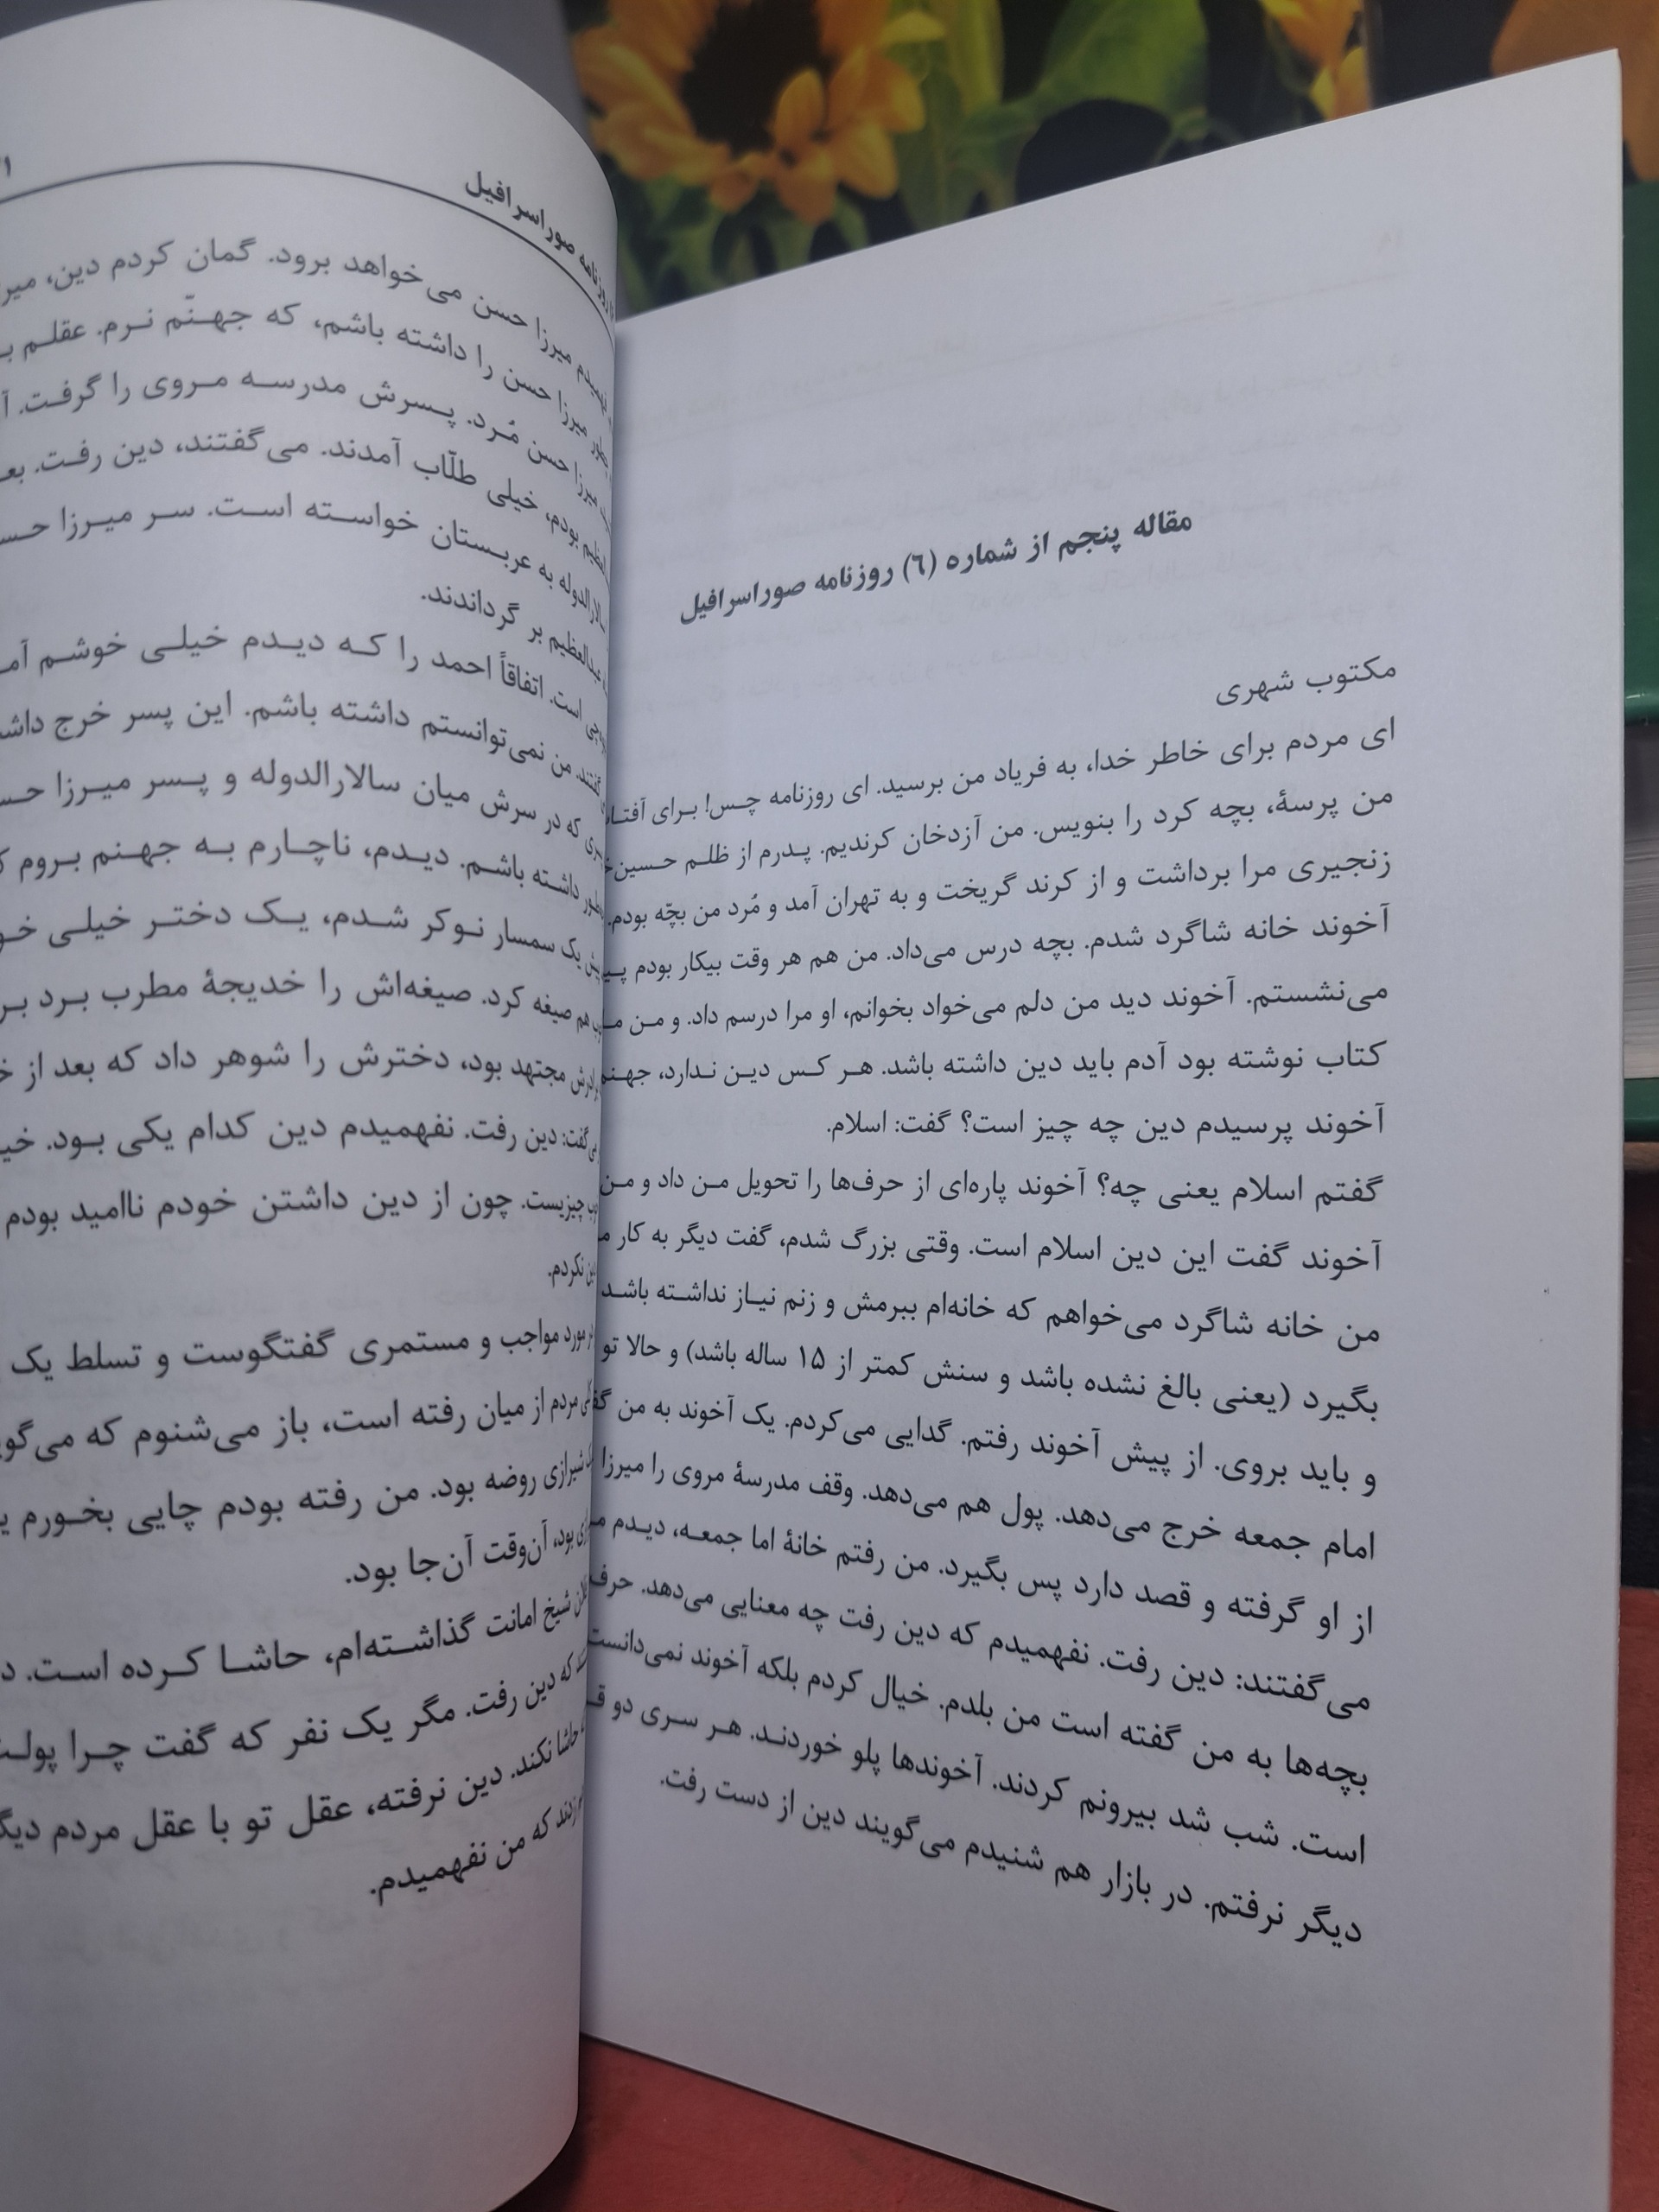 مقاله پنجم از شماره (٦) روزنامه صوراسرافیل
مکتوب شهری
ای مردم برای خاطر خدا، به فریاد من برسید. ای روزنامه چس! برای
من پرسهٔ، بچه کرد را بنویس. من آزدخان کرندیم. پدرم از ظلم
زنجیری مرا برداشت و از کرند گریخت و به تهران آمد و مُرد من بچّه بودم.
آخوند خانه شاگرد شدم. بچه درس می‌داد. من هم هر وقت بیکار بودم
می‌نشستم. آخوند دید من دلم می‌خواد بخوانم، او مرا درسم داد. و من
کتاب نوشته بود آدم باید دین داشته باشد. هر کس دین ندارد،
آخوند پرسیدم دین چه چیز است؟ گفت: اسلام.
گفتم اسلام یعنی چه؟ آخوند پاره‌ای از حرف‌ها را تحویل من داد و من
آخوند گفت این دین اسلام است. وقتی بزرگ شدم، گفت دیگر به کار
من خانه شاگرد می‌خواهم که خانه‌ام ببرمش و زنم نیاز نداشته باشد
بگیرد (یعنی بالغ نشده باشد و سنش کمتر از ۱۵ ساله باشد) و حالا تو
و باید بروی. از پیش آخوند رفتم. گدایی می‌کردم. یک آخوند به من
امام جمعه خرج می‌دهد. پول هم می‌دهد. وقف مدرسهٔ مروی را میرزا
از او گرفته و قصد دارد پس بگیرد. من رفتم خانهٔ اما جمعه، دیدم
می‌گفتند: دین رفت. نفهمیدم که دین رفت چه معنایی می‌دهد.
بچه‌ها به من گفته است من بلدم. خیال کردم بلکه آخوند نمی‌دانست
است. شب شد بیرونم کردند. آخوندها پلو خوردند. هر سری دو
دیگر نرفتم. در بازار هم شنیدم می‌گویند دین از دست رفت.
صوراسرافیل
میرزا حسن می‌خواهد برود. گمان کردم دین،
میرزا حسن را داشته باشم، که جهنّم نرم. عقلم
میرزا حسن مُرد. پسرش مدرسه مروی را گرفت.
بودم، خیلی طلّاب آمدند. می‌گفتند، دین رفت.
به عربستان خواسته است. سر میرزا
عبدالعظیم بر گرداندند.
است. اتفاقاً احمد را که دیدم خیلی خوشم
گفتند. من نمی‌توانستم داشته باشم. این پسر خرج
که در سرش میان سالارالدوله و پسر میرزا
داشته باشم. دیدم، ناچارم به جهنم بروم
یک سمسار نوکر شدم، یک دختر خیلی
هم صیغه کرد. صیغه‌اش را خدیجهٔ مطرب برد
مجتهد بود، دخترش را شوهر داد که بعد از
دین رفت. نفهمیدم دین کدام یکی بود.
چیزیست. چون از دین داشتن خودم ناامید بودم
نکردم.
مورد مواجب و مستمری گفتگوست و تسلط یک
مردم از میان رفته است، باز می‌شنوم که
شیرازی روضه بود. من رفته بودم چایی بخورم
بود، آن‌وقت آن‌جا بود.
شیخ امانت گذاشته‌ام، حاشا کرده است.
که دین رفت. مگر یک نفر که گفت چرا
حاشا نکند. دین نرفته، عقل تو با عقل مردم
که من نفهمیدم.